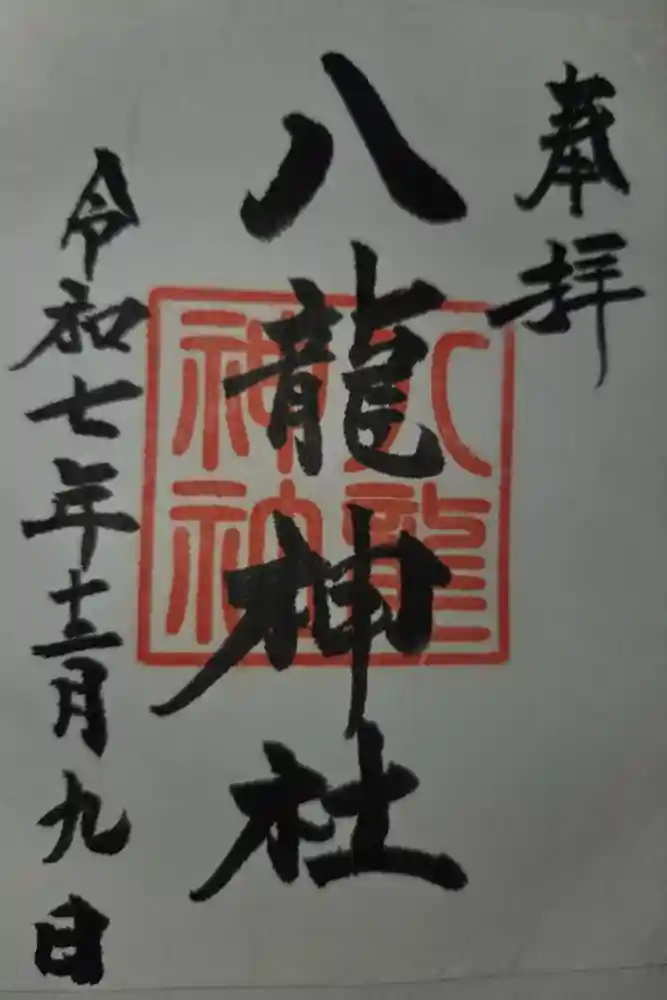 奉拝
八龍神社
八龍
神社
令和七年十二月九日